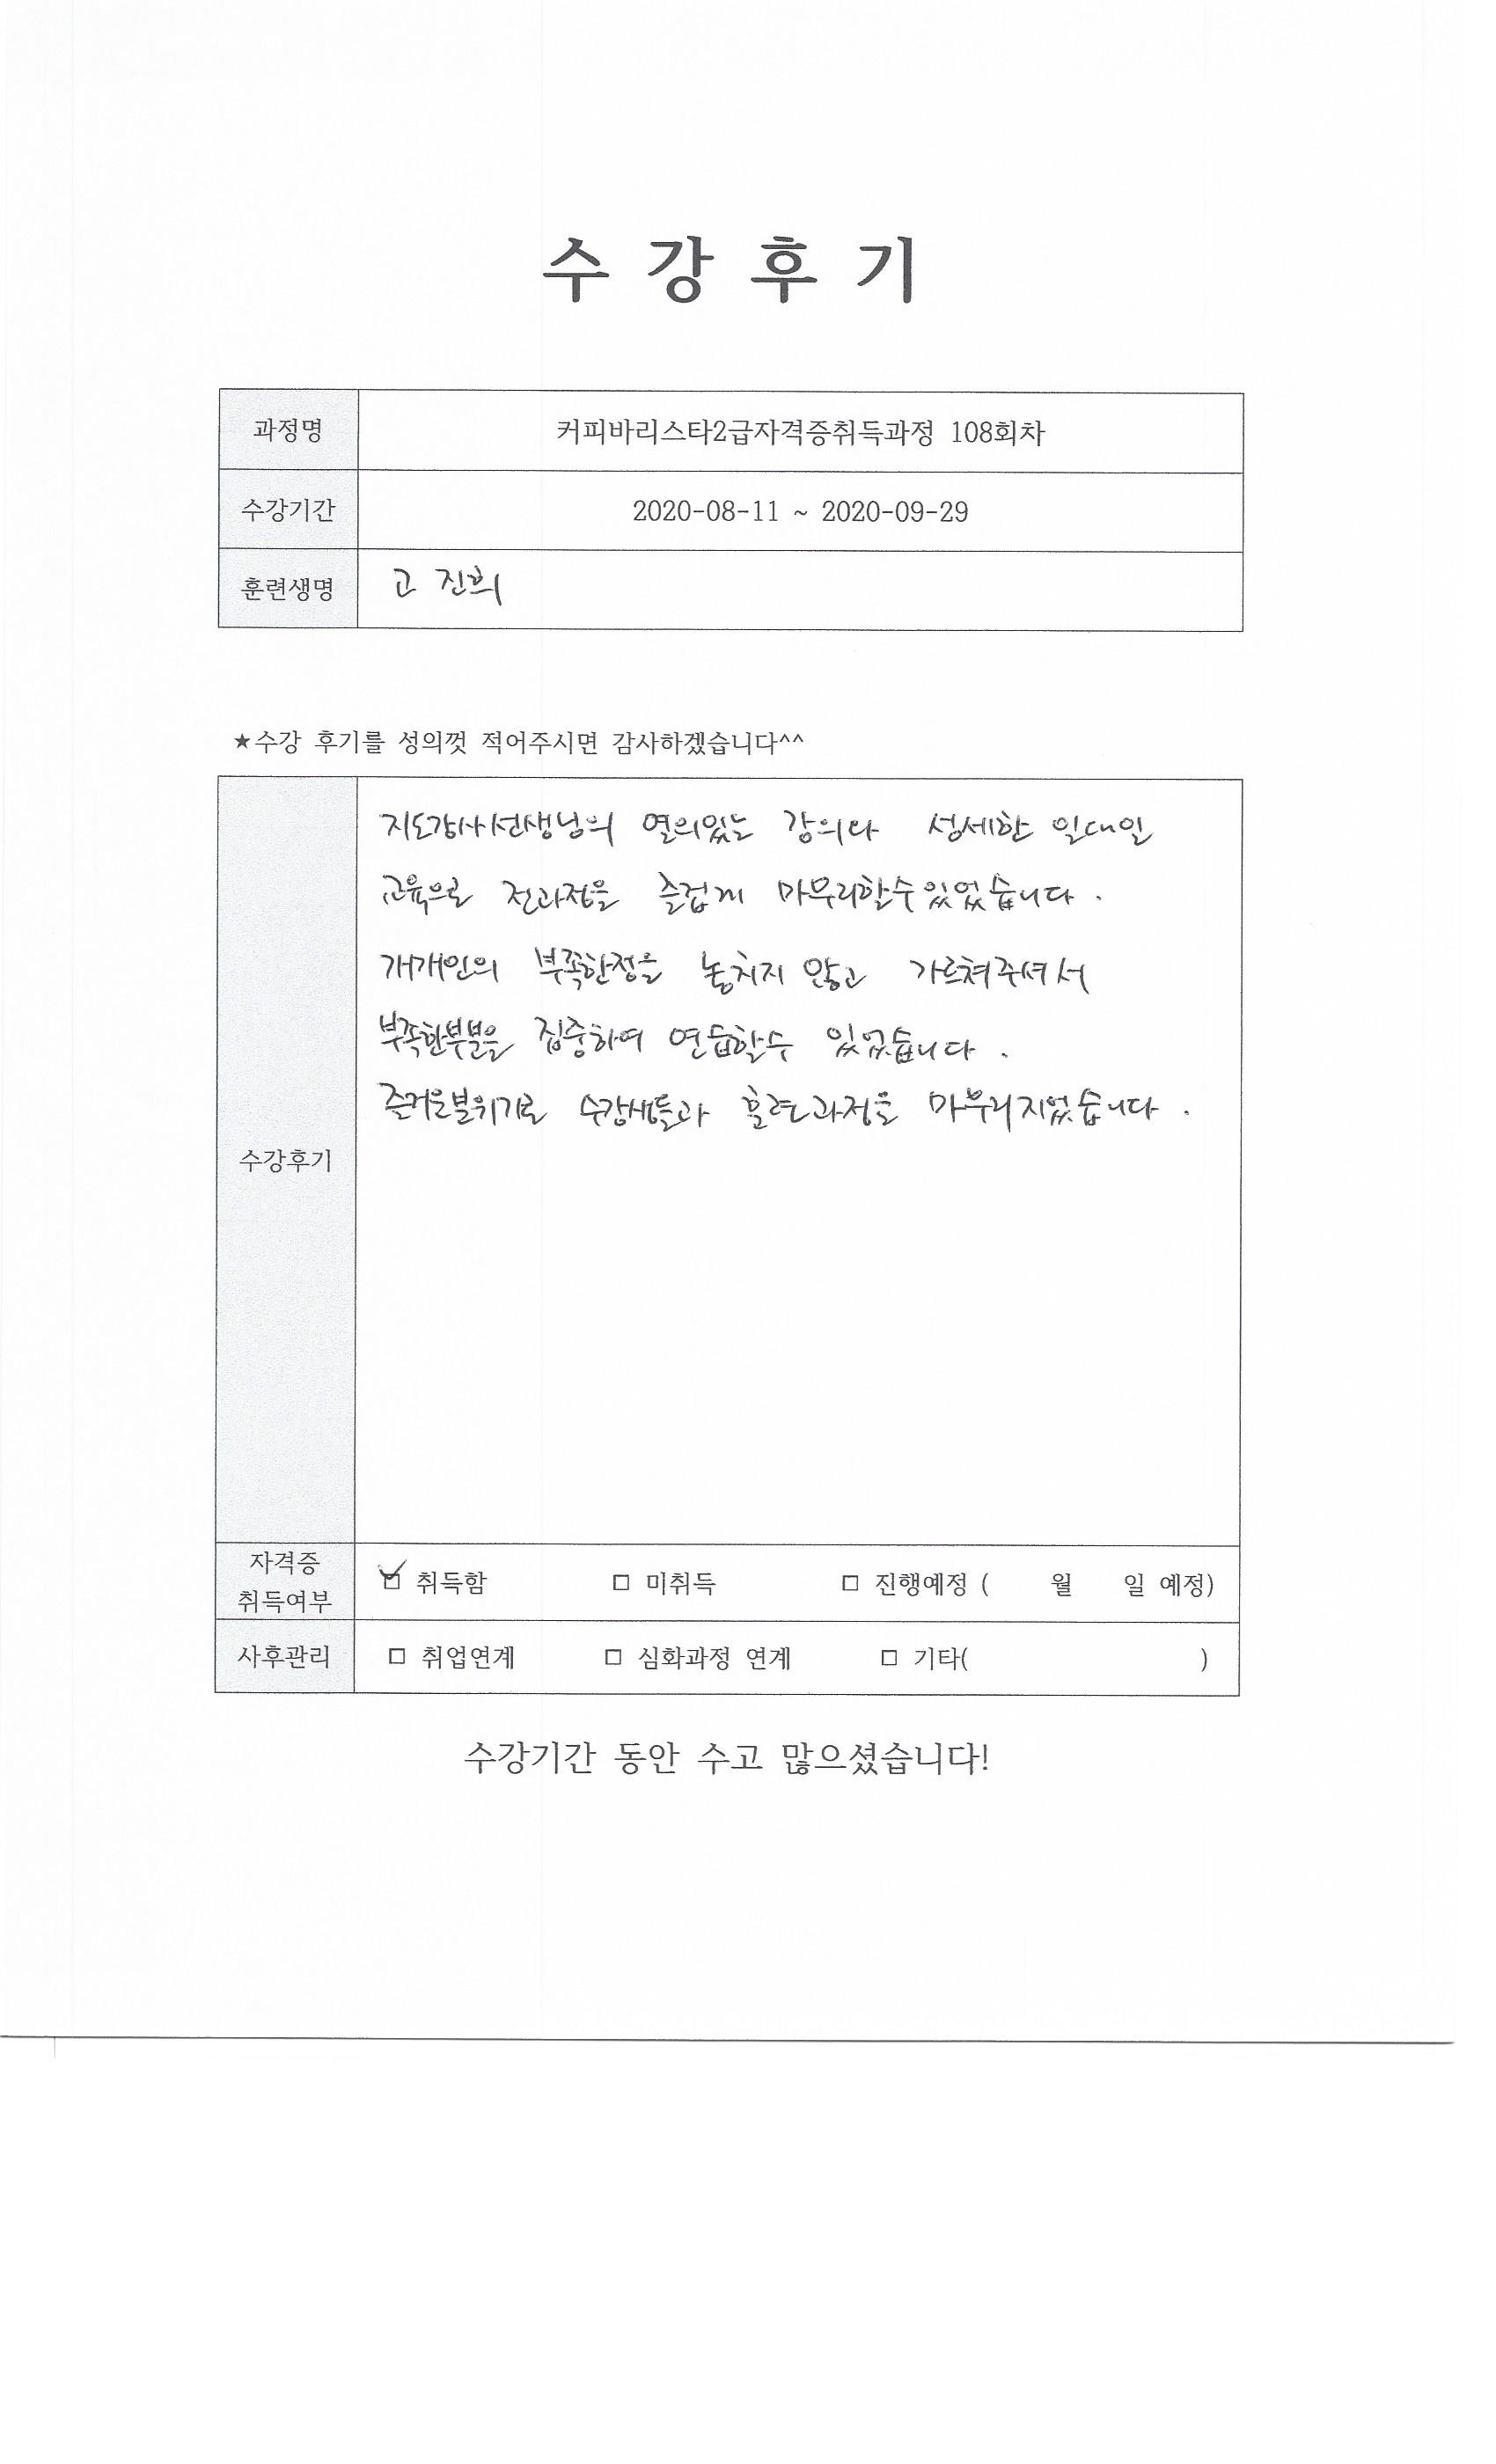 수 강 후 기
과정명 커피바리스타2급자격증취득과정 108회차
수강기간 2020-08-11 ~ 2020-09-29
훈련생명 고 진희
★수강 후기를 성의껏 적어주시면 감사하겠습니다^^
지도강사선생님의 열의있는 강의와 섬세한 일대일
교육으로 전과정을 즐겁게 마무리할수있었습니다.
개개인의 부족한점을 놓치지 않고 가르쳐주셔서
부족한부분을 집중하여 연습할수 있었습니다.
즐거운분위기로 수강생들과 훈련과정을 마무리지었습니다.
수강후기
자격증
취득여부 □ 취득함 □ 미취득 □ 진행예정 ( 월 일 예정)
사후관리 □ 취업연계 □ 심화과정 연계 □ 기타( )
수강기간 동안 수고 많으셨습니다!